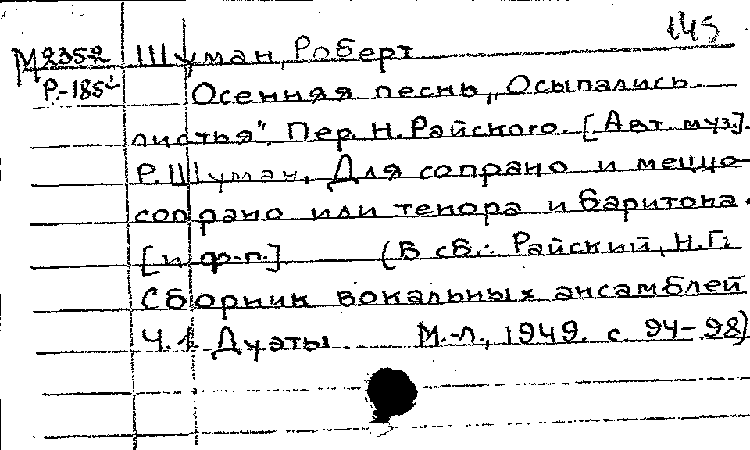 145
М2352 Шуман, Роберт
Р-185 Осенняя песнь „Осыпались
листья". Пер. Н. Райского. [Авт. муз.].
Р. Шуман. Для сопрано и меццо-
сопрано или тенора и баритона.
[и ф.-п.] (В сб.: Райский, Н.Г.
Сборник вокальных ансамблей
Ч. 1. Дуэты. М.-Л., 1949. с. 94-98)